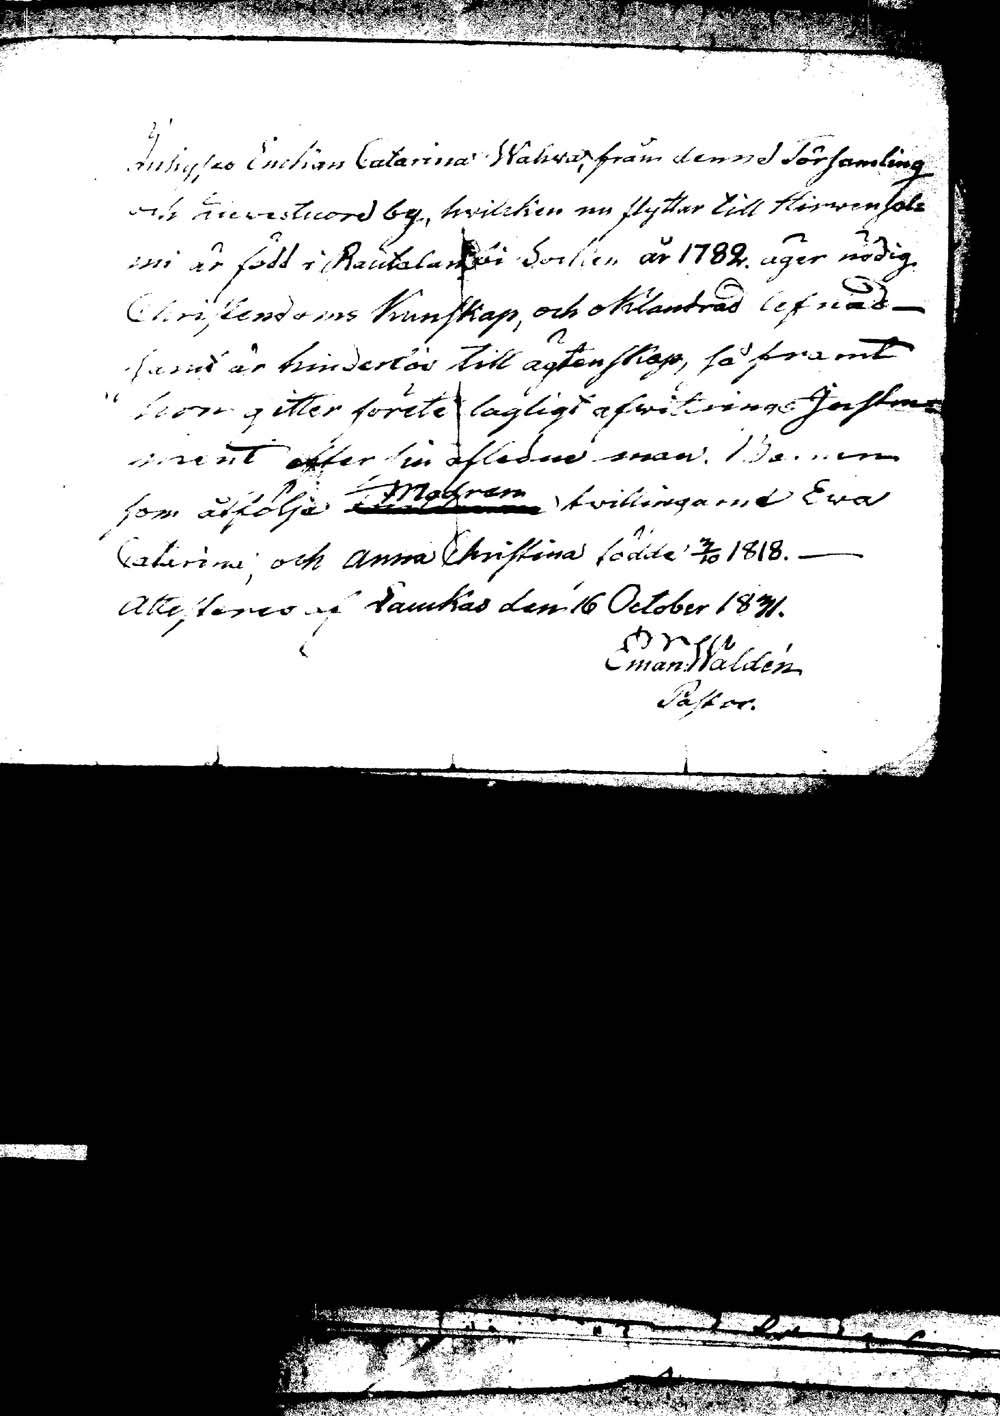 Enkian Catarina Wahva, från denna Församling
och by, hvilcken nu flyttar till Hirvensal
mi är född i Rautalambi Socken år 1782. äger nödig
Christendoms Kunskap, och oklandrad lefnad —
samt är hinderlös till ägtenskap, så framt
hon gitter förete lagligt afwittrings Instru=
ment efter sin aflednе man. Barnen
som åtfölja Modren tvillingarne Ewa
Catarina, och Anna Christina födde 3/10 1818. —
Attesteras af Laukas den 16 October 1831.
Eman: Waldén
Pastor.